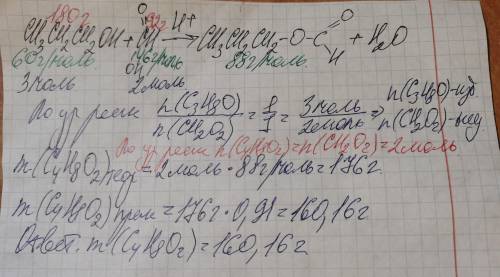 180г 92г
O
CH₃CH₂CH₂OH + CH H⁺ → CH₃CH₂CH₂-O-C O H + H₂O
OH
60г/моль 46г/моль 88г/моль
3моль 2моль
По ур реак n(C₃H₈O)/n(CH₂O₂) = 1/1 = 3моль/2моль ⇒ n(C₃H₈O)-изб n(CH₂O₂)-нед
По ур реак n(C₄H₈O₂)=n(CH₂O₂)=2моль
m(C₄H₈O₂)теор=2моль·88г/моль=176г.
m(C₄H₈O₂)прак=176г·0,91=160,16г
Ответ: m(C₄H₈O₂)=160,16г